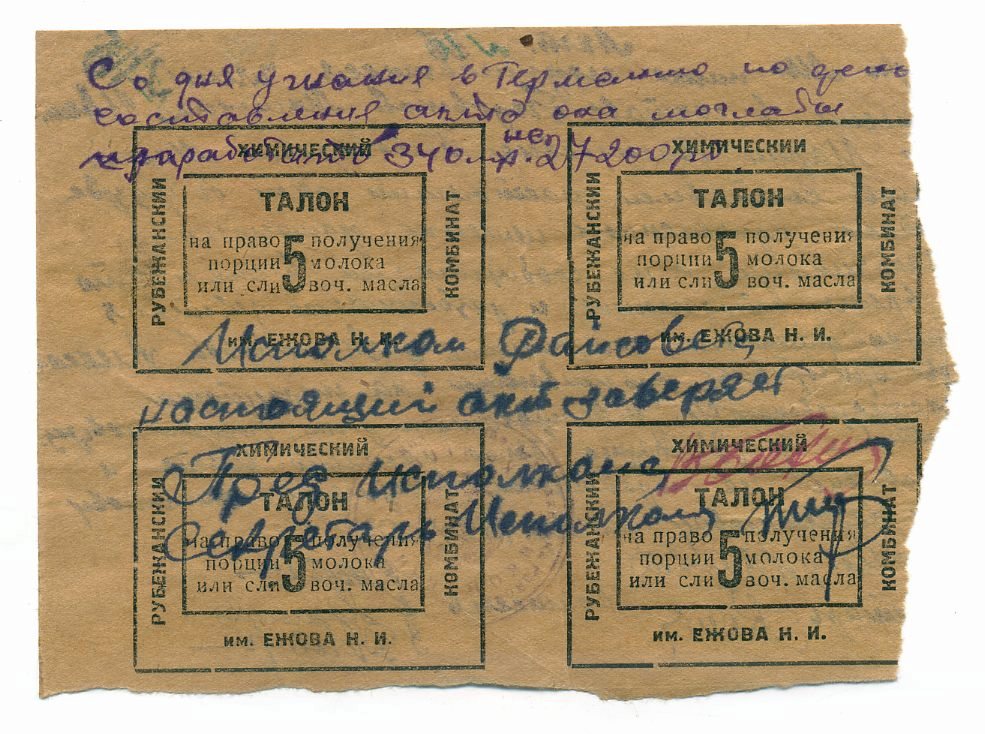 Со дня угнания в Германию по день
составления акта она могла бы
заработать 340 27200
ХИМИЧЕСКИЙ
РУБЕЖАНСКИЙ
КОМБИНАТ
ТАЛОН
на право 5 получения
порции молока
или сливоч. масла
им. ЕЖОВА Н. И.
ХИМИЧЕСКИЙ
РУБЕЖАНСКИЙ
КОМБИНАТ
ТАЛОН
на право 5 получения
порции молока
или сливоч. масла
им. ЕЖОВА Н. И.
Исполком Райсовета
настоящий акт заверяет
Пред Исполкома
Секретарь Исполкома
ХИМИЧЕСКИЙ
РУБЕЖАНСКИЙ
КОМБИНАТ
ТАЛОН
на право 5 получения
порции молока
или сливоч. масла
им. ЕЖОВА Н. И.
ХИМИЧЕСКИЙ
РУБЕЖАНСКИЙ
КОМБИНАТ
ТАЛОН
на право 5 получения
порции молока
или сливоч. масла
им. ЕЖОВА Н. И.